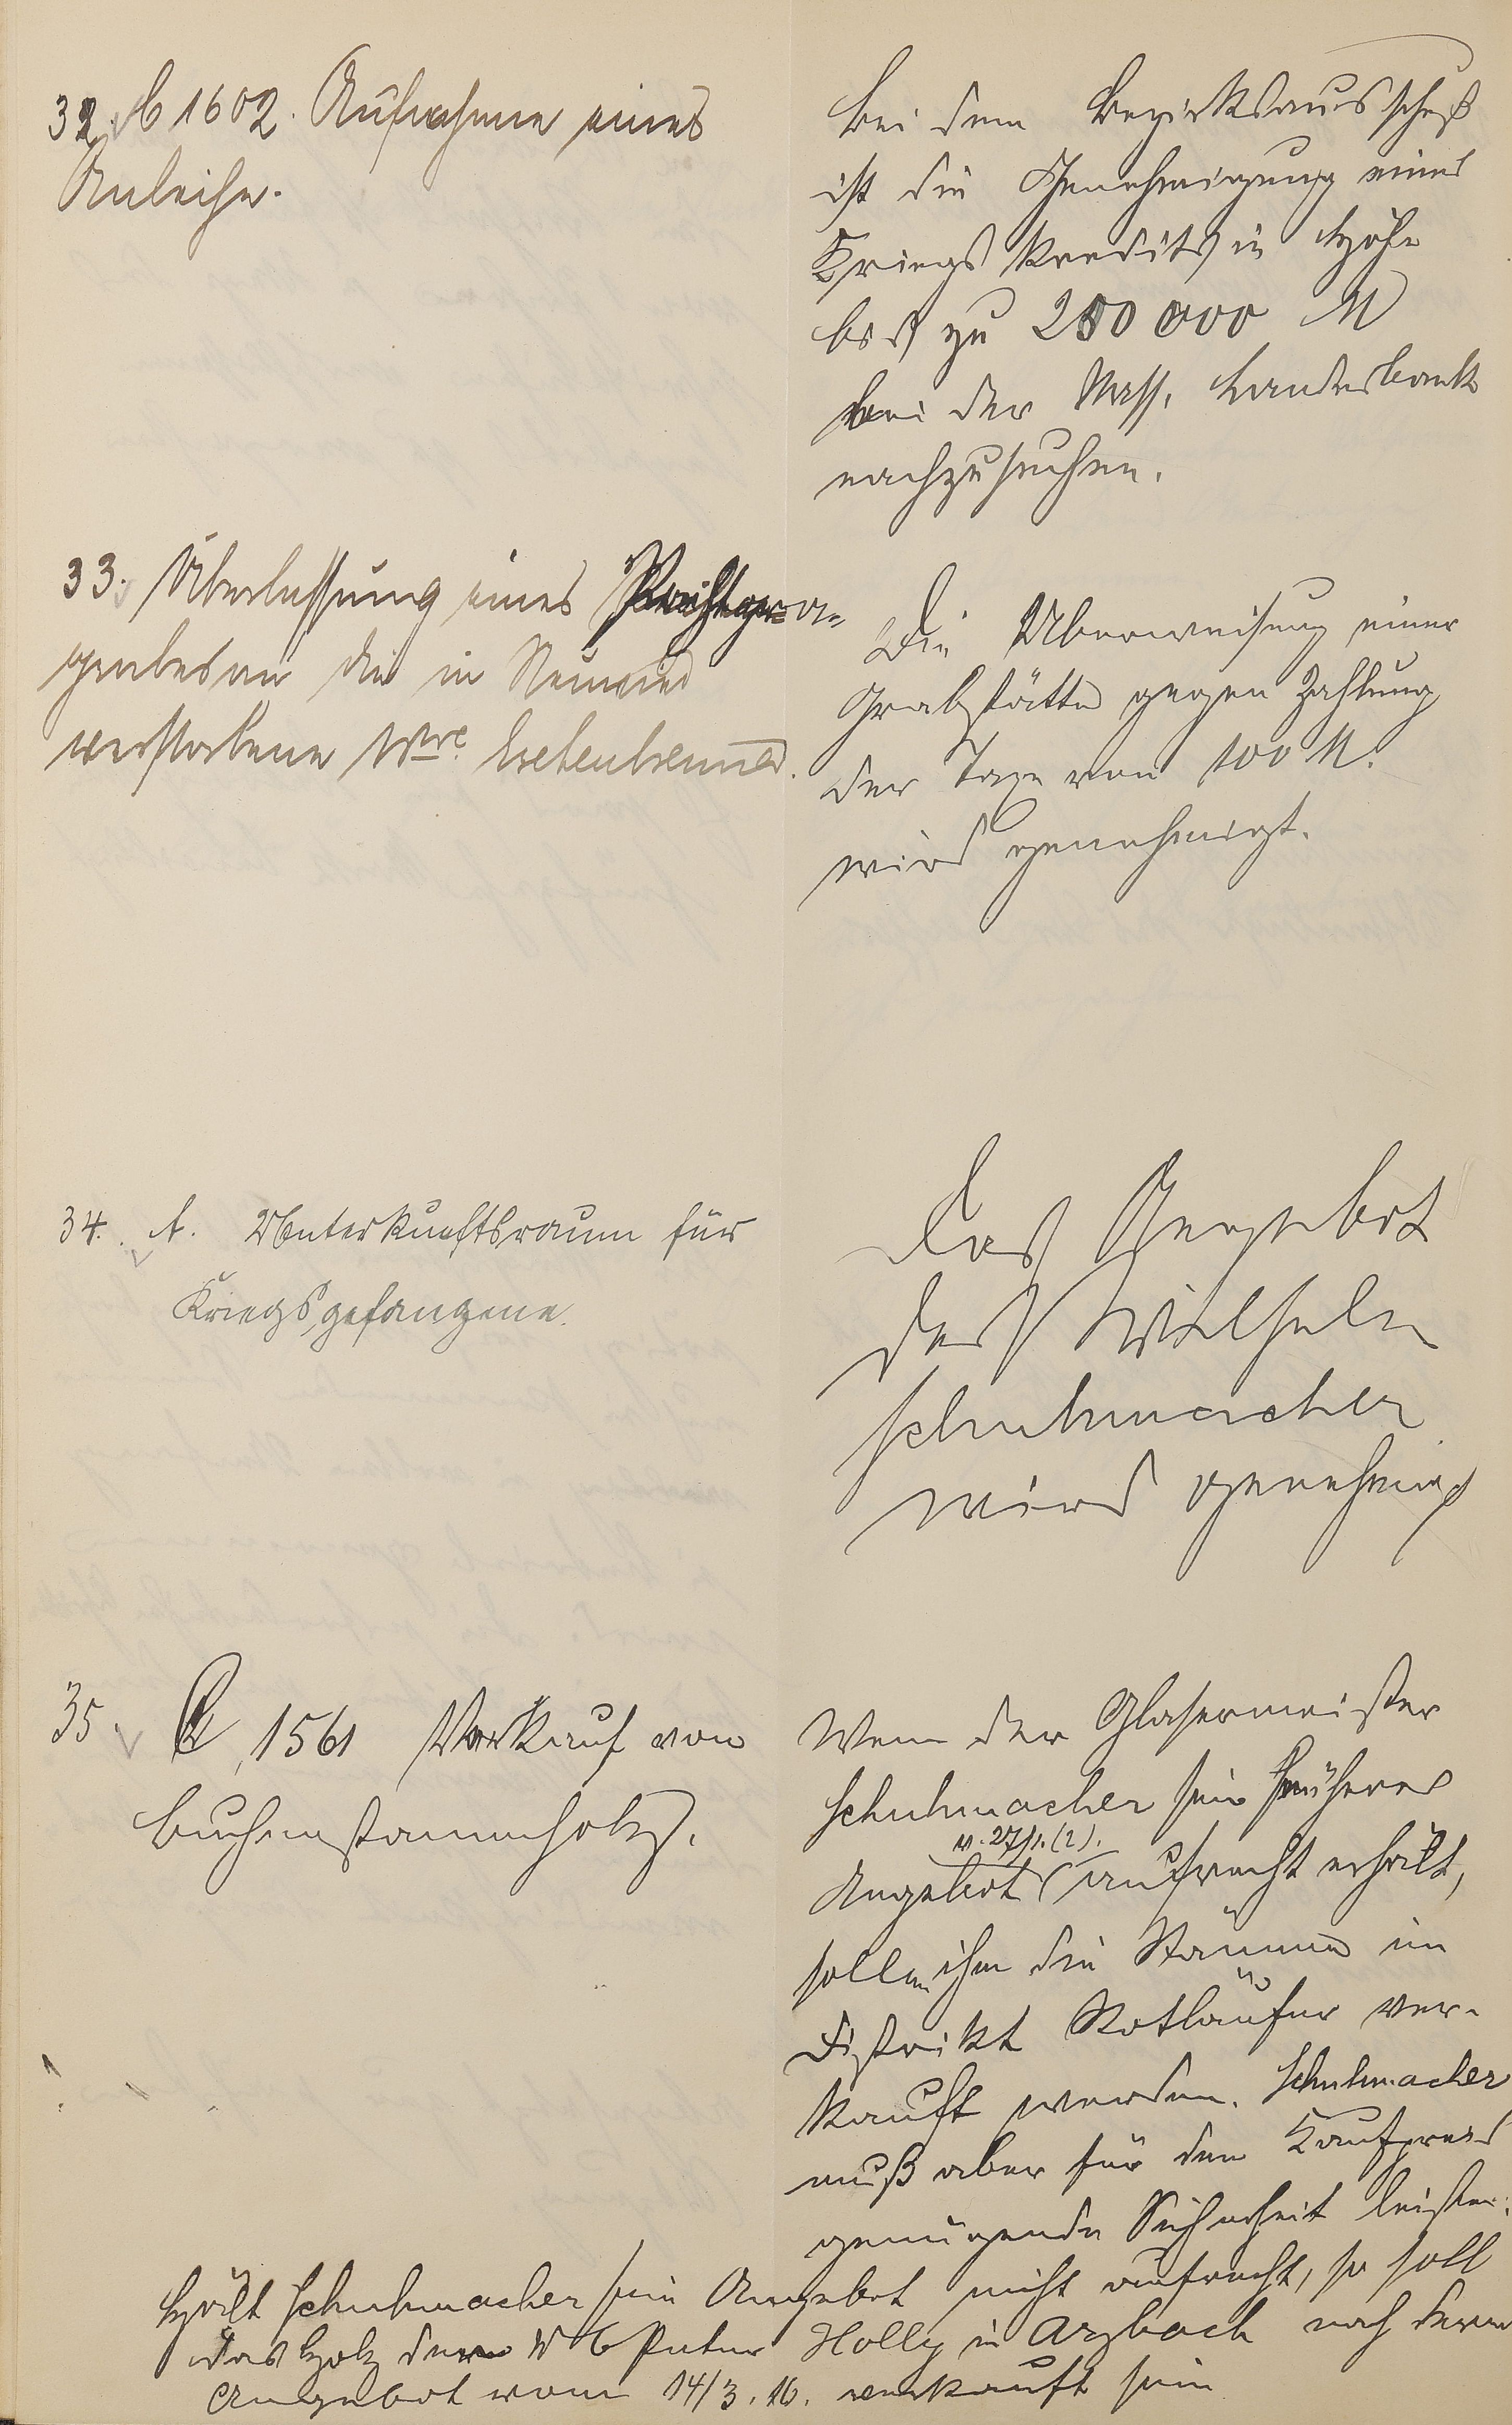 32. b 1602. Aufnahme eines
Anleihe.
Bei dem Bezirksausschuß
ist die Genehmigung eines
Kriegskredits in Höhe
bis zu 200 000 M
bei der Nass. Landesbank
nachzusuchen.
33. Überlassung eines
grabes an die in Neuwied
verstorbene Wwe.
Die Überweisung einer
Grabstätte gegen Zahlung
der Taxe von 100 M.
wird genehmigt.
34. A. Unterkunftsraum für
Kriegsgefangene.
Das Gegebot
des Wilhelm
Schuhmacher
wird genehmigt
35. 1561 Verkauf von
Buchenstammholz.
Wenn der Glasermeister
Schuhmacher sein früheres
v. 27/1. (2).
Angebot aufrecht erhält,
sollen ihm die Stämme im
Distrikt Rotläufer ver-
kauft werden. Schuhmacher
muß aber für den Kaufpreis
genügende Sicherheit leisten.
Hält Schuhmacher sein Angebot nicht aufrecht, so soll
das Holz dem Peter Holly in Arzbach nach deren
Angebot vom 14/3. 16. verkauft sein